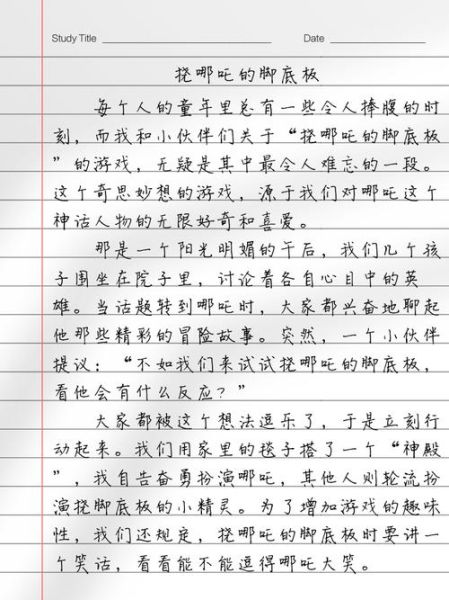 Study Title
Date
挠哪吒的脚底板
每个人的童年里总有一些令人捧腹的时
刻，而我和小伙伴们关于“挠哪吒的脚底板
”的游戏，无疑是其中最令人难忘的一段。
这个奇思妙想的游戏，源于我们对哪吒这个
神话人物的无限好奇和喜爱。
那是一个阳光明媚的午后，我们几个孩
子围坐在院子里，讨论着各自心目中的英
雄。当话题转到哪吒时，大家都兴奋地聊起
他那些精彩的冒险故事。突然，一个小伙伴
提议：“不如我们来试试挠哪吒的脚底板，
看他会有什么反应？”
大家都被这个想法逗乐了，于是立刻行
动起来。我们用家里的毯子搭了一个“神殿
”，我自告奋勇扮演哪吒，其他人则轮流扮
演挠脚底板的小精灵。为了增加游戏的趣味
性，我们还规定，挠哪吒的脚底板时要讲一
个笑话，看看能不能逗得哪吒大笑。